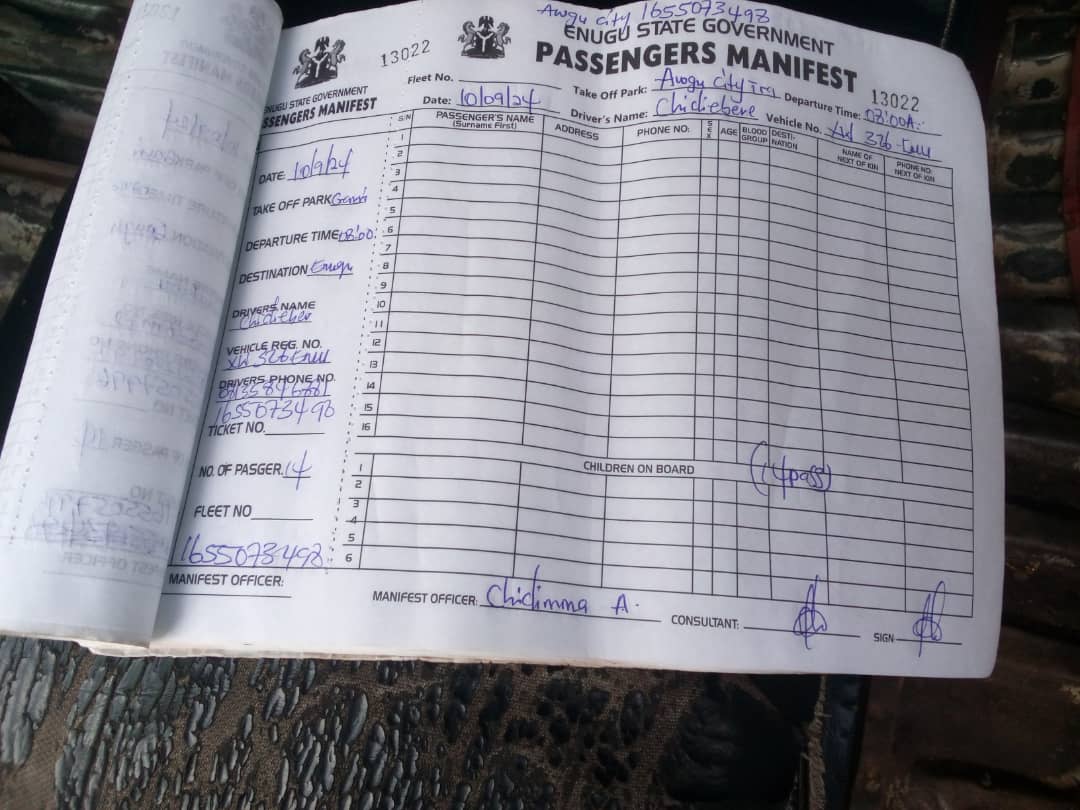 Awgu city 1655073498
ENUGU STATE GOVERNMENT
PASSENGERS MANIFEST
13022
Fleet No.
Take Off Park: Awgu City
Departure Time: 08:00A.
Date: 10/09/24
Driver's Name: Chidiebere
Vehicle No. XW 326-Enu
S/N
PASSENGER'S NAME
(Surname First)
ADDRESS
PHONE NO:
SEX
AGE
BLOOD GROUP
DESTI-NATION
NAME OF NEXT OF KIN
PHONE NO: NEXT OF KIN
1
2
3
4
5
6
7
8
9
10
11
12
13
14
15
16
CHILDREN ON BOARD
(14pass)
1
2
3
4
5
6
MANIFEST OFFICER: Chidimma A.
CONSULTANT:
SIGN
13022
ENUGU STATE GOVERNMENT
PASSENGERS MANIFEST
DATE: 10/9/24
TAKE OFF PARK
DEPARTURE TIME: 08:00
DESTINATION Enugu
DRIVERS NAME
Chidieber
VEHICLE REG. NO.
XW 326 Enu
DRIVERS PHONE NO.
1655073498
TICKET NO.
NO. OF PASGER. 14
FLEET NO
1655073498
MANIFEST OFFICER: